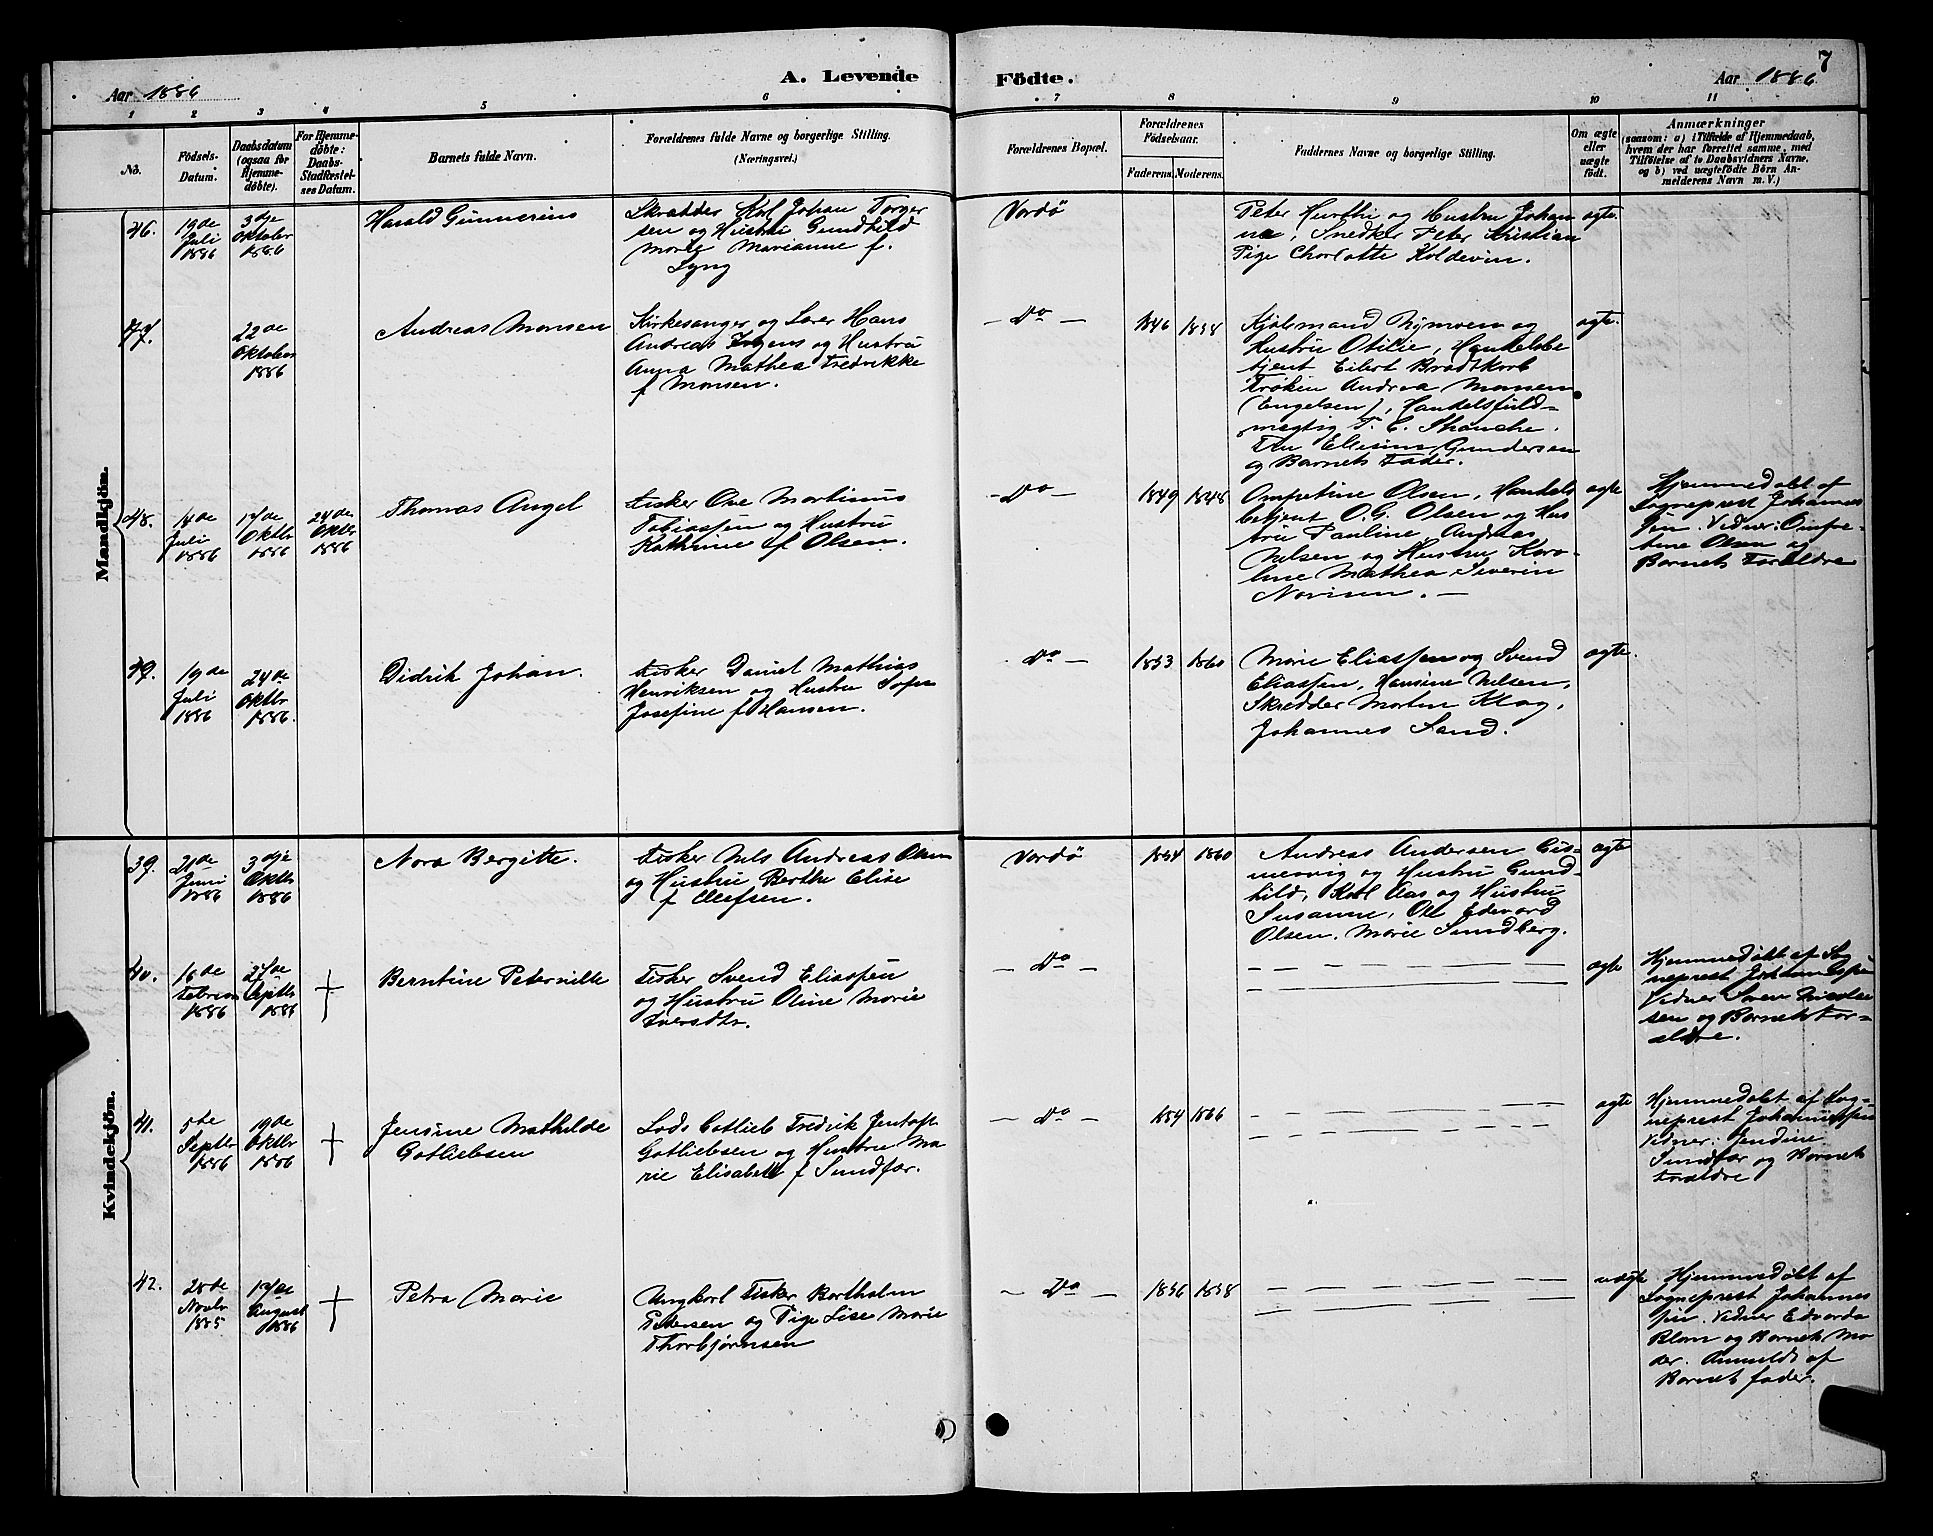 7
A. Levende Födte.
Aar 1886
Aar 1886
1 2 3 4 5 6 7 8 9 10 11
No.
Födsels-
Datum.
Daabsdatum
(ogsaa for
Hjemme-
döbte).
For Hjemme-
döbte:
Daabs-
Stadfæstel-
ses Datum.
Barnets fulde Navn.
Forældrenes fulde Navne og borgerlige Stilling.
(Næringsvei.)
Forældrenes Bopæl.
Forældrenes
Födselsaar.
Faderens. Moderens.
Faddernes Navne og borgerlige Stilling.
Om ægte
eller
uægte
født.
Anmærkninger
(saasom: a) i Tilfælde af Hjemmedaab,
hvem der har forrettet samme, med
Tilföielse af to Daabsvidners Navne.
og b) ved uægtefödte Börn An-
melderens Navn m. V.)
Mandkjön.
46.
19de
Juli
1886
3dje
Oktober
1886
Harald Gunnerius
Skrædder Karl Johan Torger
sen og Hustru Gundhild
Marie Marianne f.
Lyng
Vardø
Peter Hurthi og Hustru Johan
ne, Snedker Peter Kristian
Pige Charlotte Koldevin.
ægte.
47.
22de
Oktober
1886
Andreas Monsen
Kirkesanger og Lærer Hans
Andreas og Hustru
Anna Mathea Fredrikke
f Monsen.
- Do -
1846 1858
og
Hustru Otilie, Handelsbe
tjent Eilert Bradtkorb
Frøken Andrea Monsen
(Engelsen), Handelsfuld=
mægtig T. C. Skanche.
Fru Elisine Gundersen
og Barnets Fader.
ægte.
48.
14de
Juli
1886
17de
Oktbr
1886
24de
Oktbr
1886
Thomas Angel
Fisker Ove Martinus
Tobiassen og Hustru
Kathrine f Olsen.
- Do -
1849 1848
Olsen, Handels
betjent O. G. Olsen og Hus
tru Pauline, Andreas
Nilsen og Hustru Karo-
line Mathea Severin
ægte
Hjemmedøbt af
Sogneprest Johannes
sen. Vidner:
Olsen og
Barnets Forældre
49.
19de
Juli
1886
24de
Oktbr
1886.
Didrik Johan.
Fisker Daniel Mathias
Henriksen og Hustru Sofie
Josefine f Hansen.
- Do -
1853 1860
Marie Eliassen og Svend
Eliassen, Hansine Nilsen,
Skrædder Morten Klag,
Johannes Sand.
ægte.
Kvindekjön.
39.
21de
Juni
1886
3dje
Oktbr
1886
Nora Bergitte.
Fisker Nils Andreas Olsen
og Hustru Berthe Elise
f Olefsen.
Vardø
1854 1860
Andreas Andersen
og Hustru Gund-
hild, Karl Aas og Hustru
Susanne, Ole Edevard
Olsen. Marie Sundberg.
ægte
40.
16de
Februar
1886
27de
Septbr
1886
+
Berntine Peternille
Fisker Svend Eliassen
og Hustru Oline Marie
Iversdtr.
- Do -
ægte
Hjemmedøbt af Sog
neprest Johannessen
Vidner Nicolai
sen og Barnets For=
ældre.
41.
5te
Septbr
1886
19de
Oktbr
1886
+
Jensine Mathilde
Gotliebsen
Lods Gotlieb Fredrik Jentoft
Gotliebsen og Hustru Ma
rie Elisabeth f Sundfær.
- Do -
1854 1866
ægte
Hjemmedøbt af Sog=
neprest Johannessen
Vidner: Jendine
Sundfær og Barnets
Forældre
42.
28de
Novbr
1885
17de
August
1886
+
Petra Marie
Ungkarl Fisker Bartholm
Pedersen og Pige Lise Marie
Thorbjørnsen
- Do -
1856 1858
uægte
Hjemmedøbt af
Sogneprest Johannes
sen. Vidner Edvarda
Blom og Barnets Mo
der. Anmeldt af
Barnets fader.